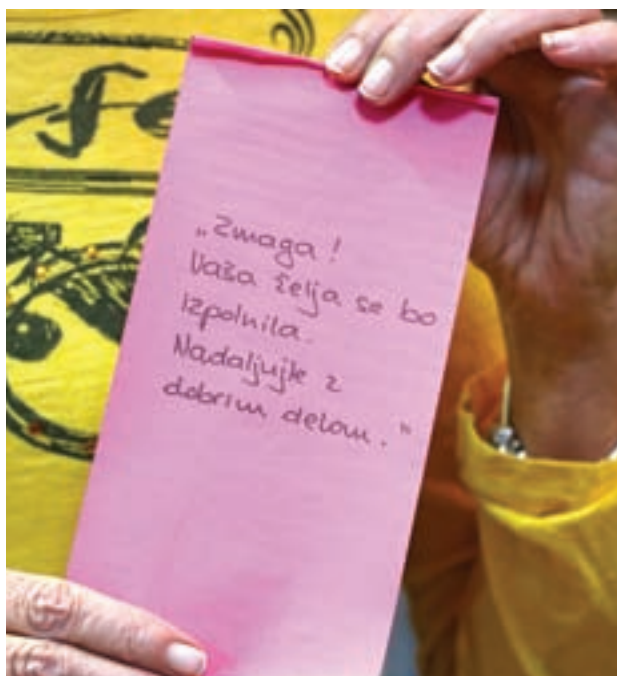 „Zmaga!
Vaša želja se bo
izpolnila.
Nadaljujte z
dobrim delom.“